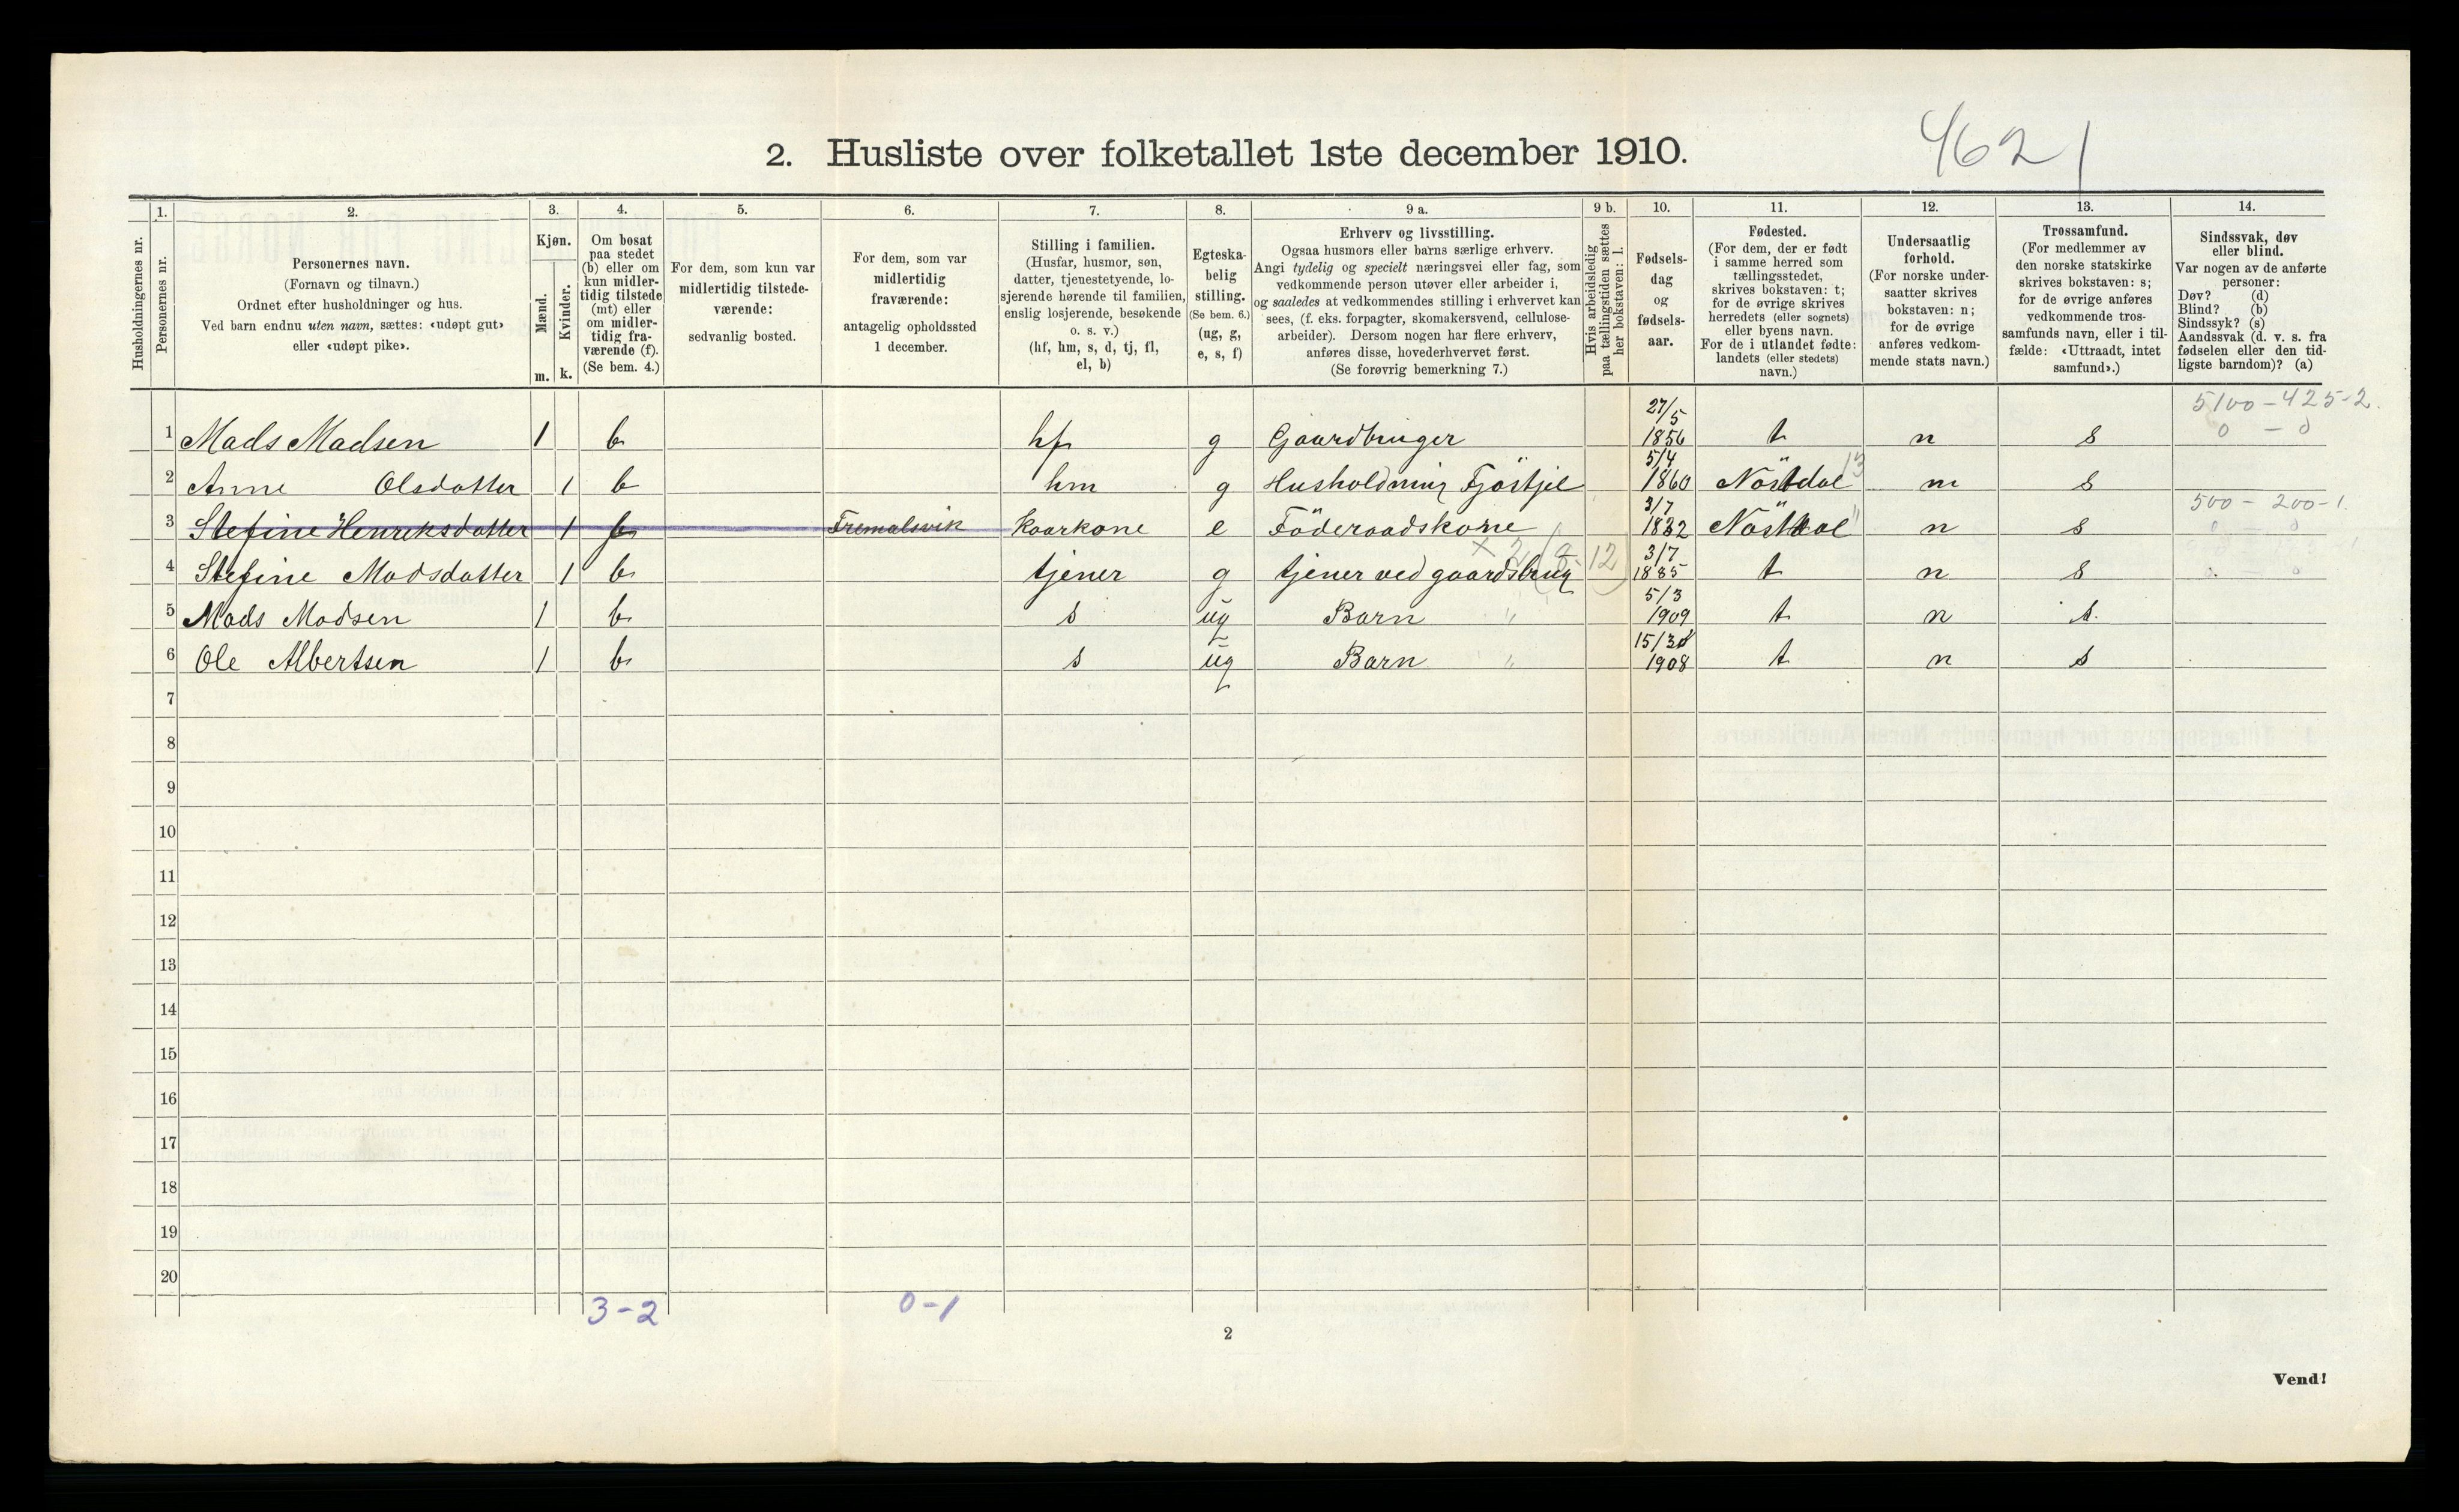 4621
2. Husliste over folketallet 1ste december 1910.
Husholdningernes nr.
1. Personernes nr.
2. Personernes navn.
(Fornavn og tilnavn.)
Ordnet efter husholdninger og hus.
Ved barn endnu uten navn, sættes: «udøpt gut»
eller «udøpt pike».
3. Kjøn.
Mænd. m.
Kvinder. k.
4. Om bosat
paa stedet
(b) eller om
kun midler-
tidig tilstede
(mt) eller
om midler-
tidig fra-
værende (f).
(Se bem. 4.)
5. For dem, som kun var
midlertidig tilstede-
værende:
sedvanlig bosted.
6. For dem, som var
midlertidig
fraværende:
antagelig opholdssted
1 december.
7. Stilling i familien.
(Husfar, husmor, søn,
datter, tjenestetyende, lo-
sjerende hørende til familien,
enslig losjerende, besøkende
o. s. v.)
(hf, hm, s, d, tj, fl,
el, b)
8. Egteska-
belig
stilling.
(Se bem. 6.)
(ug, g,
e, s, f)
9 a. Erhverv og livsstilling.
Ogsaa husmors eller barns særlige erhverv.
Angi tydelig og specielt næringsvei eller fag, som
vedkommende person utøver eller arbeider i,
og saaledes at vedkommendes stilling i erhvervet kan
sees, (f. eks. forpagter, skomakersvend, cellulose-
arbeider). Dersom nogen har flere erhverv,
anføres disse, hovederhvervet først.
(Se forøvrig bemerkning 7.)
9 b. Hvis arbeidsledig
paa tællingstiden sættes
her bokstaven: l.
10. Fødsels-
dag
og
fødsels-
aar.
11. Fødested.
(For dem, der er født
i samme herred som
tællingsstedet,
skrives bokstaven: t;
for de øvrige skrives
herredets (eller sognets)
eller byens navn.
For de i utlandet fødte:
landets (eller stedets)
navn.)
12. Undersaatlig
forhold.
(For norske under-
saatter skrives
bokstaven: n;
for de øvrige
anføres vedkom-
mende stats navn.)
13. Trossamfund.
(For medlemmer av
den norske statskirke
skrives bokstaven: s;
for de øvrige anføres
vedkommende tros-
samfunds navn, eller i til-
fælde: «Uttraadt, intet
samfund».)
14. Sindssvak, døv
eller blind.
Var nogen av de anførte
personer:
Døv? (d)
Blind? (b)
Sindssyk? (s)
Aandssvak (d. v. s. fra
fødselen eller den tid-
ligste barndom)? (a)
5100 - 425-2.
0 - 0
1 Mads Madsen 1 b hf g Gaardbruger 27/5 1856 t n s
2 Anne Olsdatter 1 b hm g Husholdning Fjöstjel 5/4 1860 Nöstdal 13 n s
500 - 200-1.
3 Stefine Henriksdatter 1 Tremalsvik Kaarkone e Föderaadskone 3/7 1832 n s
4 Stefine Madsdatter 1 b tjener g tjener ved gaardsbrug 12 3/7 1885 t n s
5 Mads Madsen 1 b s ug Barn " 5/3 1909 t n s.
6 Ole Albertsen 1 b s ug Barn " 15/3 1908 t n s
7
8
9
10
11
12
13
14
15
16
17
18
19
20
3-2 0-1
2
Vend!